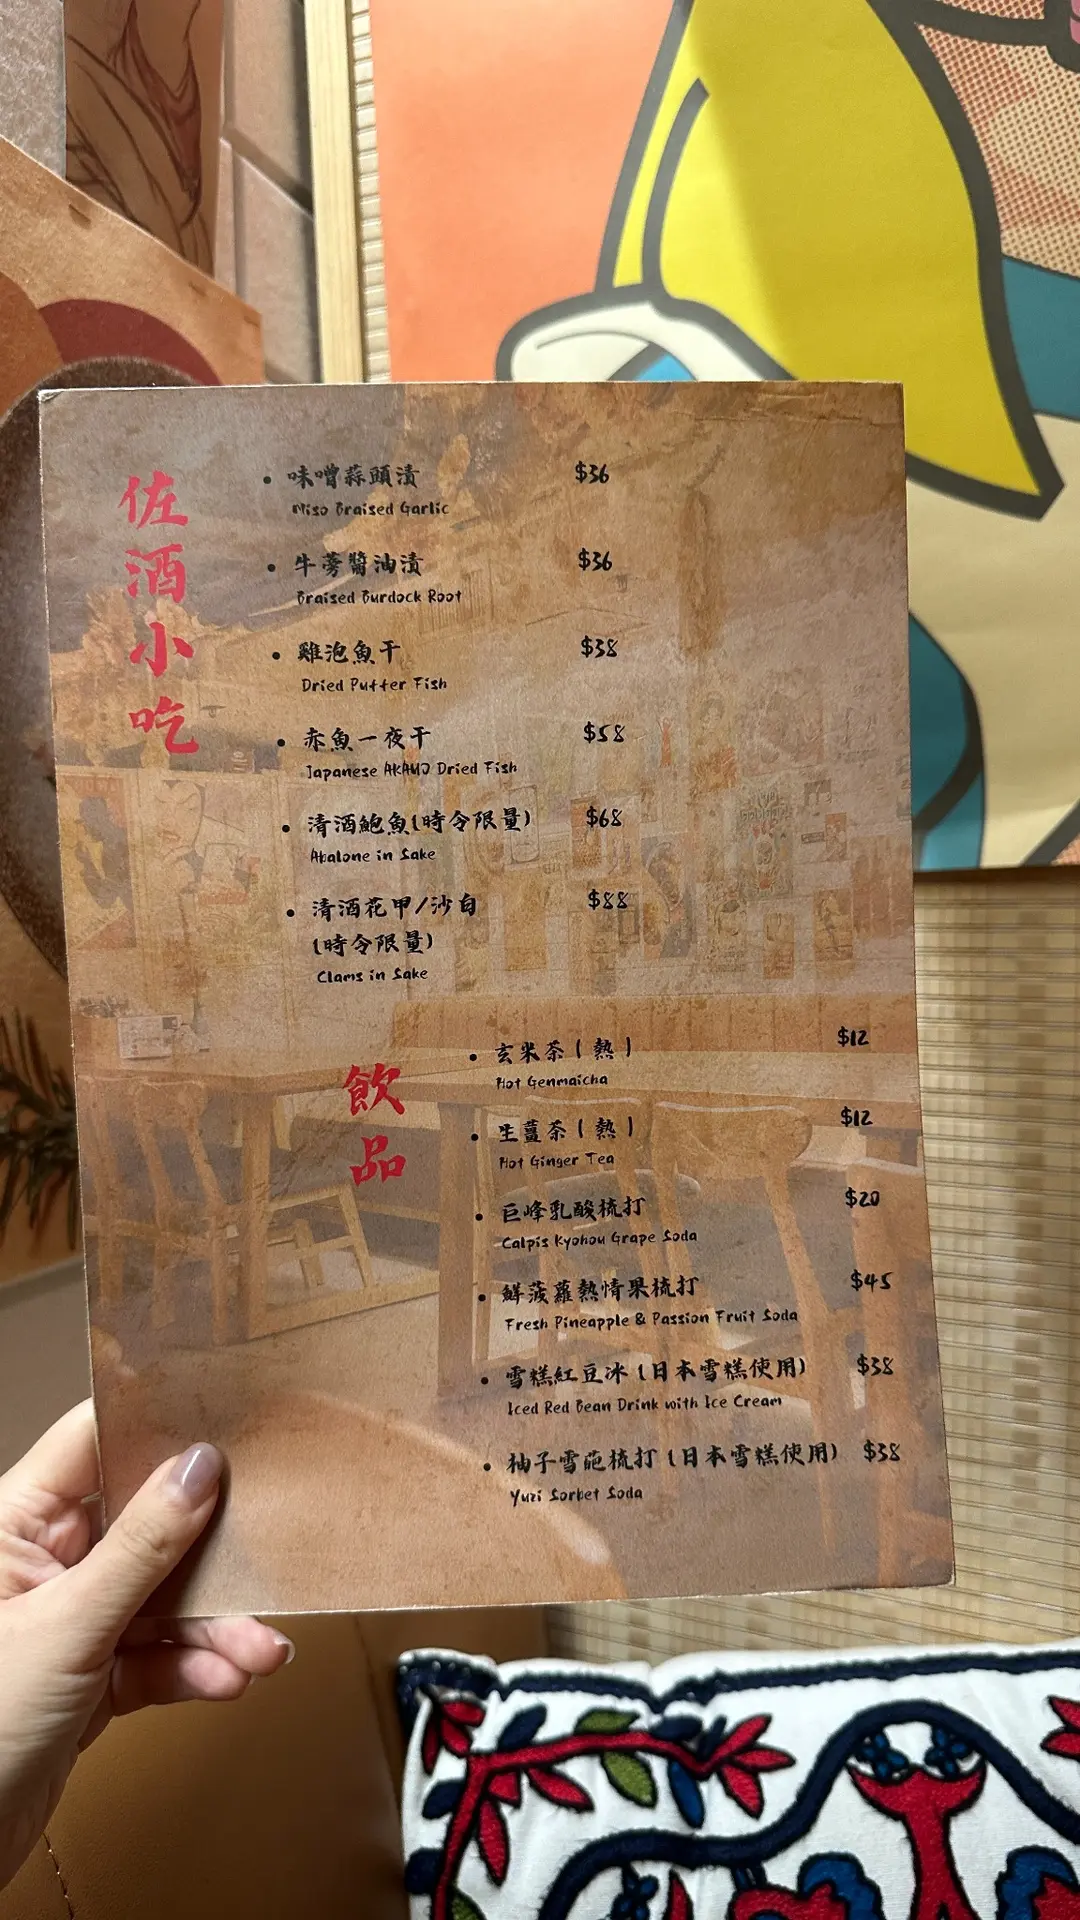 佐酒小吃
味噌蒜頭漬 $36
Miso Braised Garlic
牛蒡醬油漬 $36
Braised Burdock Root
雞泡魚干 $38
Dried Puffer Fish
赤魚一夜干 $58
Japanese AKAUO Dried Fish
清酒鮑魚(時令限量) $68
Abalone in Sake
清酒花甲/沙白 $88
(時令限量)
Clams in Sake
飲品
玄米茶(熱) $12
Hot Genmaicha
生薑茶(熱) $12
Hot Ginger Tea
巨峰乳酸梳打 $20
Calpis Kyohou Grape Soda
鮮菠蘿熱情果梳打 $45
Fresh Pineapple & Passion Fruit Soda
雪糕紅豆冰(日本雪糕使用) $38
Iced Red Bean Drink with Ice Cream
柚子雪葩梳打(日本雪糕使用) $38
Yuzi Sorbet Soda